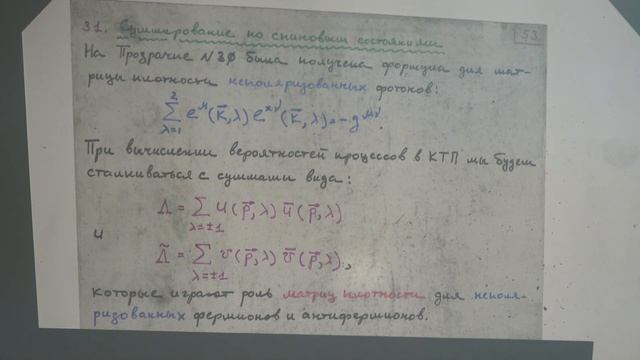 31. Суммирование по спиновым состояниям
53
На Прозрачке №30 была получена формула для мат-
рицы плотности неполяризованных фотонов:
∑_{λ=1}^{2} e^μ(k⃗,λ) e^{*ν}(k⃗,λ) = -g^{μν}.
При вычислении вероятностей процессов в КТП мы будем
сталкиваться с суммами вида:
Λ = ∑_{λ=±1} u(p⃗,λ) ū(p⃗,λ)
и
Λ̃ = ∑_{λ=±1} v(p⃗,λ) v̄(p⃗,λ),
которые играют роль матриц плотности для неполя-
ризованных фермионов и антифермионов.